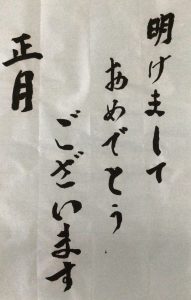 明けまして
おめでとう
ございます
正月